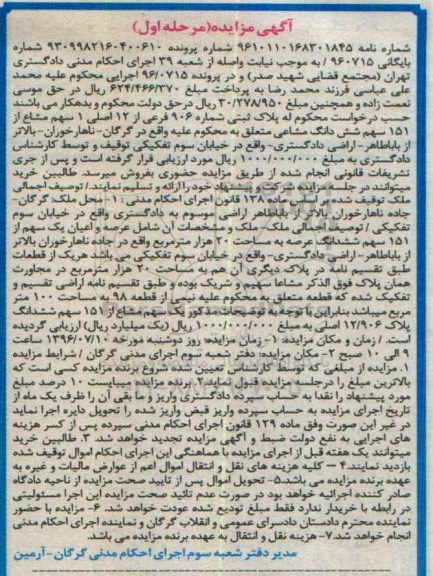 آگهی مزایده (مرحله اول)
شماره نامه ۹۶۱۰۱۱۰۱۶۸۳۰۱۸۴۵ شماره پرونده ۹۳۰۹۹۸۲۱۶۰۴۰۰۶۱۰ شماره
بایگانی ۹۶۰۷۱۵ / به موجب نیابت واصله از شعبه ۳۹ اجرای احکام مدنی دادگستری
تهران (مجتمع قضایی شهید صدر) و در پرونده ۹۶/۰۷۱۵ اجرایی محکوم علیه محمد
علی عباسی فرزند محمد رضا به پرداخت مبلغ ۶۲۴/۴۶۶/۳۷۰ ریال در حق موسی
نعمت زاده و همچنین مبلغ ۳۰/۲۷۸/۹۵۰ ریال در حق دولت محکوم و بدهکار می باشند
حسب درخواست محکوم له پلاک ثبتی شماره ۹۰۶ فرعی از ۱۲ اصلی ۱ سهم مشاع از
۱۵۱ سهم شش دانگ مشاعی متعلق به محکوم علیه واقع در گرگان- ناهارخوران- بالاتر
از باباطاهر- اراضی دادگستری- واقع در خیابان سوم تفکیکی توقیف و توسط کارشناس
دادگستری به مبلغ ۱۰۰۰/۰۰۰/۰۰۰ ریال مورد ارزیابی قرار گرفته است و پس از جری
تشریفات قانونی انجام شده از طریق مزایده حضوری بفروش میرسد. طالبین خرید
میتوانند در جلسه مزایده شرکت و پیشنهاد خود را ارائه و تسلیم نمایند./ توصیف اجمالی
ملک توقیف شده برابر ماده ۱۳۸ قانون اجرای احکام مدنی: ۱- محل ملک: گرگان-
جاده ناهارخوران بالاتر از باباطاهر اراضی موسوم به دادگستری واقع در خیابان سوم
تفکیکی / توصیف اجمالی ملک، ملک و مشخصات آن شامل عرصه و اعیان یک سهم از
۱۵۱ سهم ششدانگ عرصه به مساحت ۲۰ هزار مترمربع واقع در جاده ناهارخوران بالاتر
از باباطاهر- اراضی دادگستری- واقع در خیابان سوم تفکیکی می باشد هریک از قطعات
طبق تقسیم نامه در پلاک دیگری آن هم به مساحت ۲۰ هزار مترمربع در مجاورت
همان پلاک فوق الذکر مشاعا سهیم و شریک بوده و طبق تقسیم نامه اراضی تقسیم و
تفکیک شده که قطعه متعلق به محکوم علیه نیمی از قطعه ۹۸ به مساحت ۱۰۰ متر
مربع میباشد بنابراین با توجه به توضیحات مذکور یک سهم مشاع از ۱۵۱ سهم ششدانگ
پلاک ۱۲/۹۰۶ اصلی به مبلغ ۱۰۰۰/۰۰۰/۰۰۰ ریال (یک میلیارد ریال) ارزیابی گردیده
است. / زمان و مکان مزایده: ۱- زمان مزایده: روز دوشنبه مورخه ۱۳۹۶/۰۷/۱۰ ساعت
۹ الی ۱۰ صبح ۲- مکان مزایده: دفتر شعبه سوم اجرای مدنی گرگان / شرایط مزایده
۱. مزایده از مبلغی که توسط کارشناس تعیین شده شروع برنده مزایده کسی است که
بالاترین مبلغ را در جلسه مزایده قبول نماید. ۲. برنده مزایده میبایست ۱۰ درصد مبلغ
مورد پیشنهاد را نقدا به حساب سپرده دادگستری واریز و ما بقی آن را ظرف یک ماه از
تاریخ اجرای مزایده به حساب سپرده واریز قبض واریز شده را تحویل دایره اجرا نماید
در غیر این صورت وفق ماده ۱۲۹ قانون اجرای احکام مدنی سپرده پس از کسر هزینه
های اجرایی به نفع دولت ضبط و آگهی مزایده تجدید خواهد شد. ۳. طالبین خرید
میتوانند یک هفته قبل از اجرای مزایده با هماهنگی این اجرای احکام اموال توقیف شده
بازدید نمایند. ۴- کلیه هزینه های نقل و انتقال اموال اعم از عوارض مالیات و غیره به
عهده برنده مزایده می باشد. ۵- تحویل اموال پس از تایید صحت مزایده از ناحیه دادگاه
صادر کننده اجرائیه خواهد بود در صورت عدم تائید صحت مزایده این اجرا مسئولیتی
در رابطه با خریدار ندارد فقط مبلغ تودیع شده عودت خواهد شد. ۶- مزایده با حضور
نماینده محترم دادستان دادسرای عمومی و انقلاب گرگان و نماینده اجرای احکام مدنی
انجام خواهد شد. ۷- هزینه نقل و انتقال به عهده برنده مزایده می باشد.
مدیر دفتر شعبه سوم اجرای احکام مدنی گرگان- آرمین